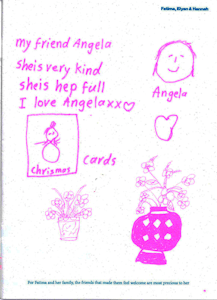 Fatima, Eliyan & Hannah
my friend Angela
sheis very kind
sheis hep full
I love Angelaxx
Angela
chrismas
cards
For Fatima and her family, the friends that made them feel welcome are most precious to her